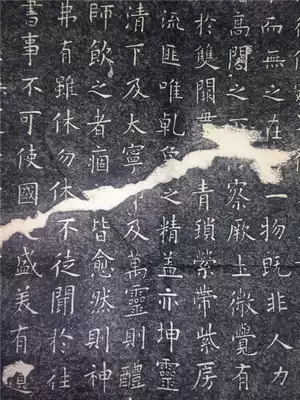 而無之在一物既非人力
高閣之下察厥土微覺有
於雙闕貫青瑣縈帶紫房
流匪唯乾象之精蓋亦坤靈
清下及太寧中及萬靈則醴
師飲之者痼皆愈然則神
弗有雖休勿休不徒聞於往
書事不可使國盛美有遺